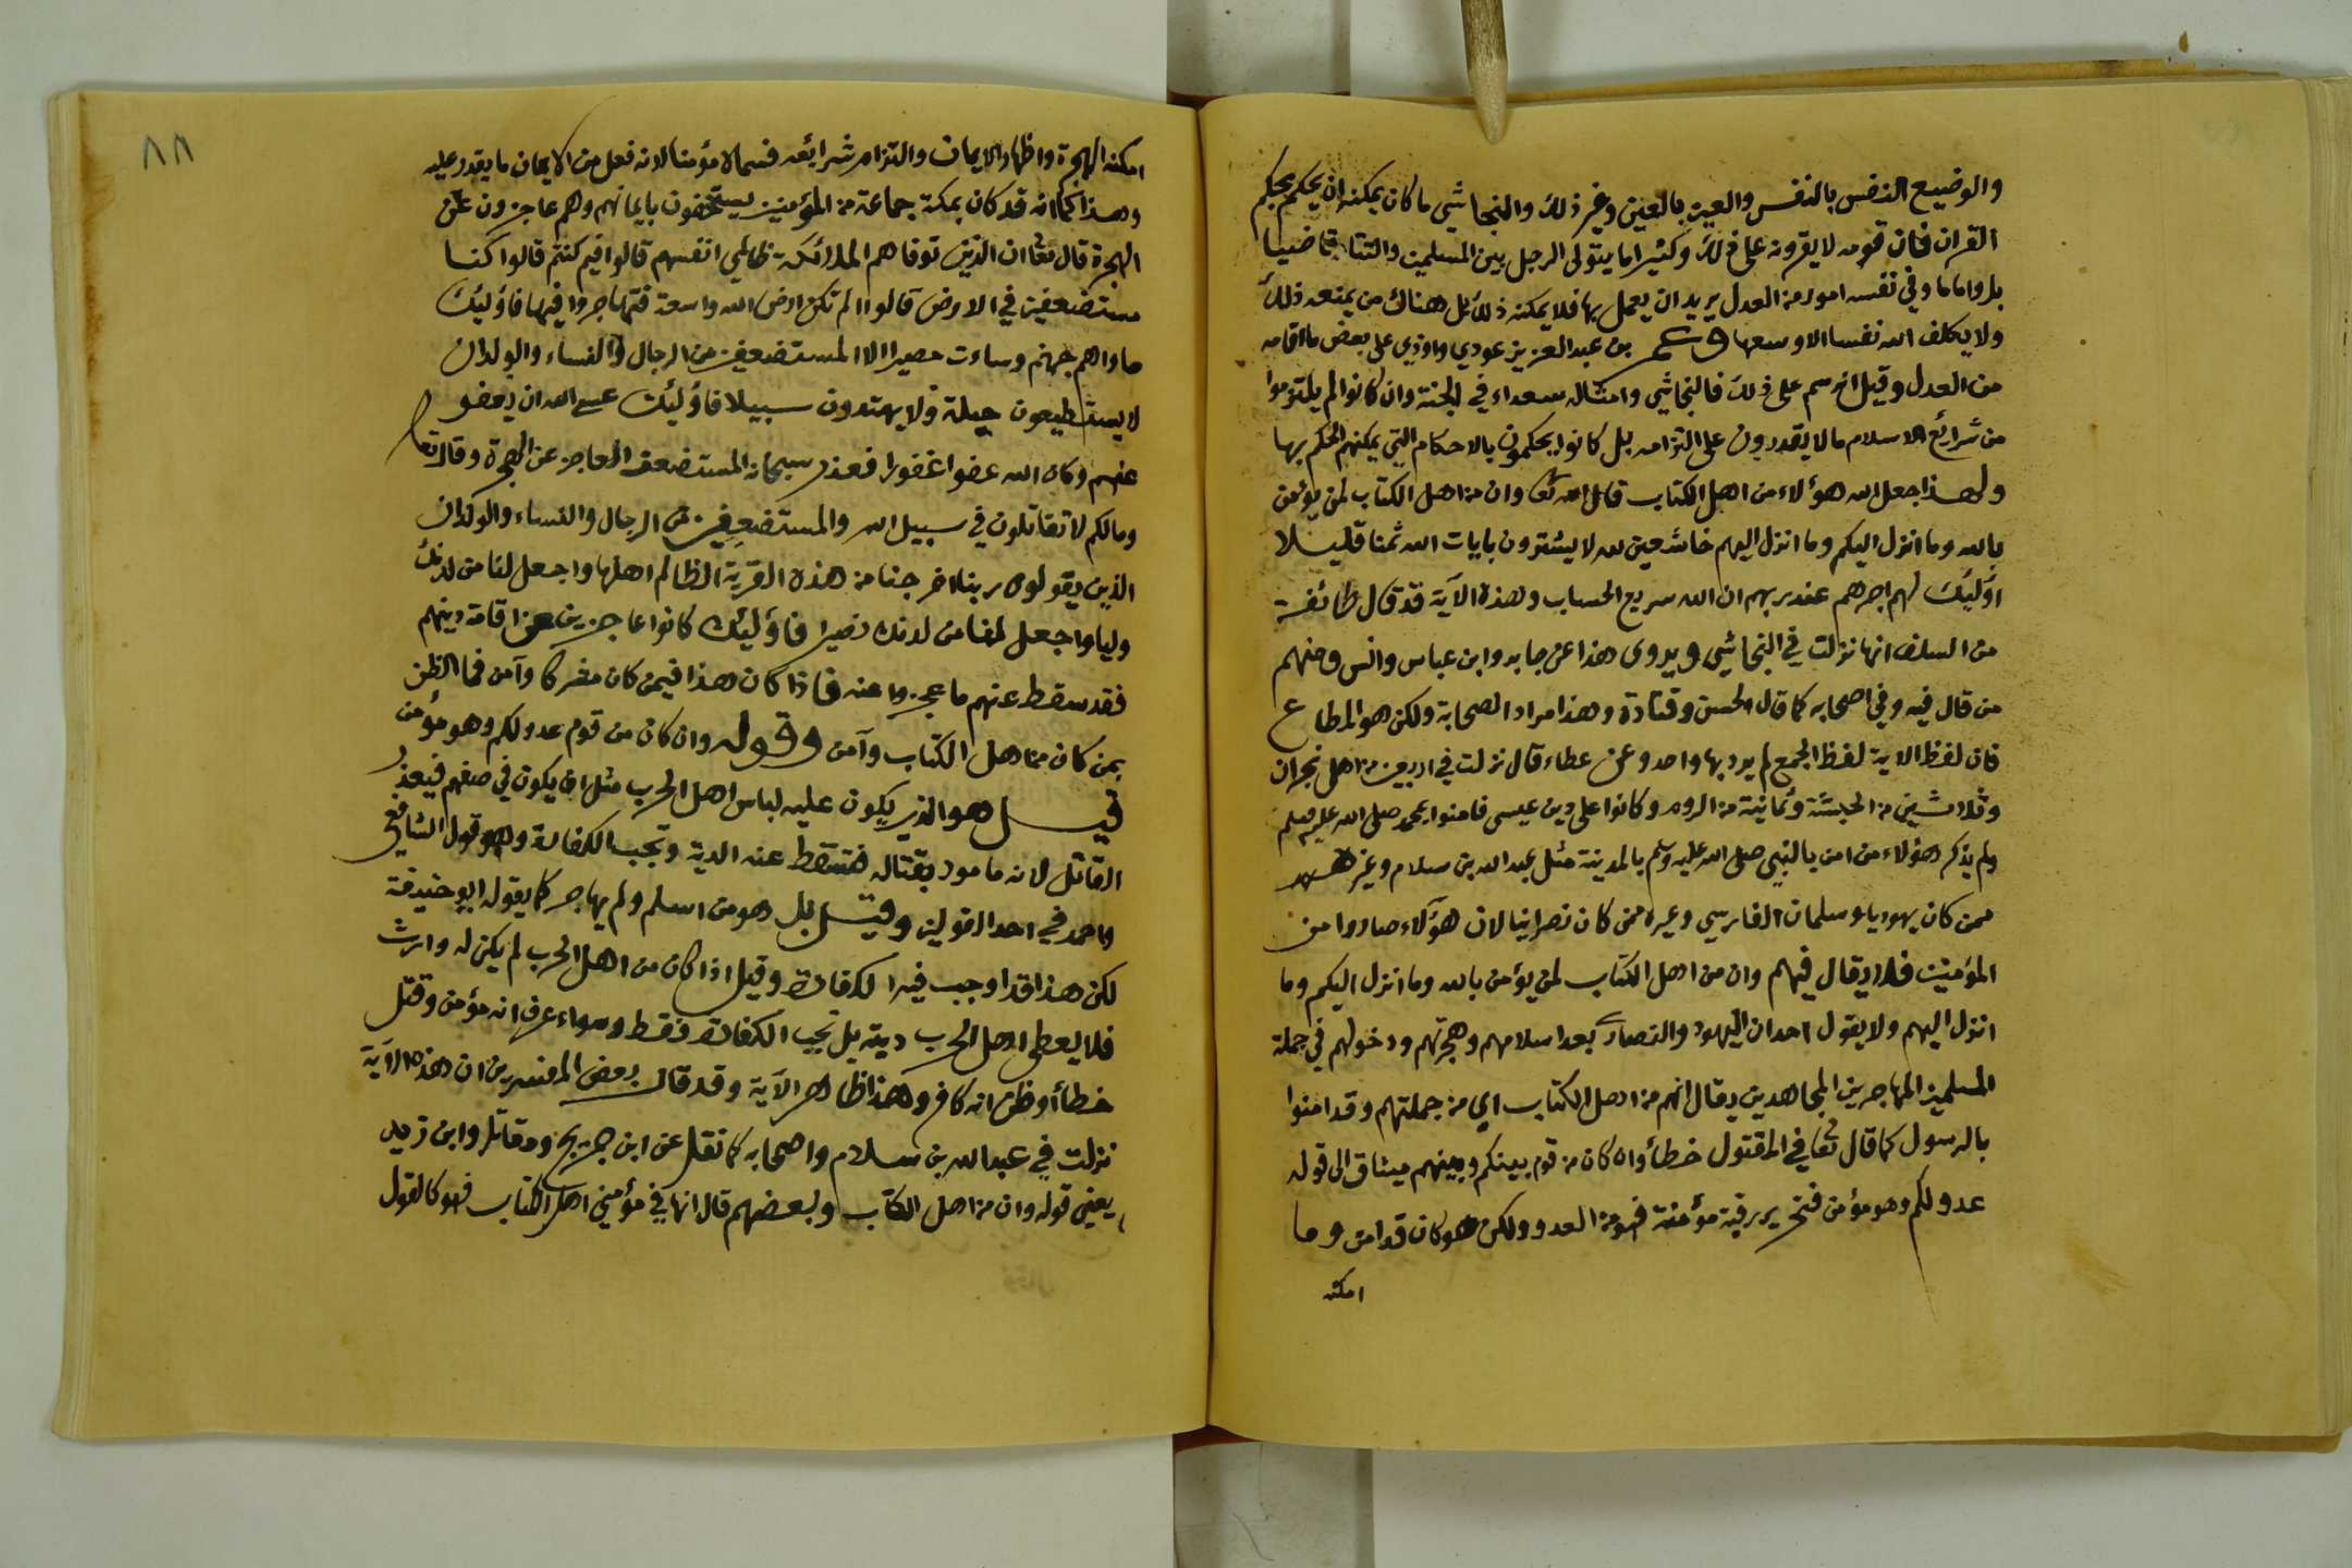 والوضيع النفس بالنفس والعين بالعين وغير ذلك والنجاشي ما كان يمكنه ان يحكم بحكم
القران فان قومه لا يقرونه على ذلك وكثيرا ما يتولى الرجل بين المسلمين والتتار قاضيا
بل واماما وفي نفسه امور من العدل يريد ان يعمل بها فلا يمكنه ذلك بل هناك من يمنعه ذلك
ولا يكلف الله نفسا الا وسعها وعمر بن عبد العزيز عودي واوذي على بعض ما اقامه
من العدل وقيل انه سم على ذلك فالنجاشي وامثاله سعداء في الجنة وان كانوا لم يلتزموا
من شرائع الاسلام ما لا يقدرون على التزامه بل كانوا يحكمون بالاحكام التي يمكنهم الحكم بها
ولهذا جعل الله هؤلاء من اهل الكتاب قال الله تعا وان من اهل الكتاب لمن يؤمن
بالله وما انزل اليكم وما انزل اليهم خاشعين لله لا يشترون بايات الله ثمنا قليلا
اولئك لهم اجرهم عند ربهم ان الله سريع الحساب وهذه الآية قد قال طائفة
من السلف انها نزلت في النجاشي ويروى هذا عن جابر وابن عباس وانس ومنهم
من قال فيه وفي اصحابه كما قال الحسن وقتادة وهذا مراد الصحابة ولكن هو المطاع
فان لفظ الاية لفظ الجمع لم يرد بها واحد وعن عطاء قال نزلت في اربعين من اهل نجران
وثلاثين من الحبشة وثمانية من الروم وكانوا على دين عيسى فامنوا بمحمد صلى الله عليه وسلم
ولم يذكر هؤلاء من امن بالنبي صلى الله عليه وسلم بالمدينة مثل عبد الله بن سلام وغيرهم
ممن كان يهوديا وسلمان الفارسي وغيره ممن كان نصرانيا لان هؤلاء صاروا من
المؤمنين فلا يقال فيهم وان من اهل الكتاب لمن يؤمن بالله وما انزل اليكم وما
انزل اليهم ولا يقول احد ان اليهود والنصارى بعد اسلامهم وهجرتهم ودخولهم في جملة
المسلمين المهاجرين المجاهدين يقال انهم من اهل الكتاب اي من جملتهم وقد امنوا
بالرسول كما قال تعا في المقتول خطأ وان كان من قوم بينكم وبينهم ميثاق الى قوله
عدو لكم وهو مؤمن فتحرير رقبة مؤمنة فهو من العدو ولكن هو كان قد امن وما
امكنه
٨٨
امكنه الهجرة واظهار الايمان والتزام شرائعه فسماه مؤمنا لانه فعل من الايمان ما يقدر عليه
وهذا كما انه قد كان بمكة جماعة من المؤمنين يستخفون بايمانهم وهم عاجزون عن
الهجرة قال تعا ان الذين توفاهم الملائكة ظالمي انفسهم قالوا فيم كنتم قالوا كنا
مستضعفين في الارض قالوا الم تكن ارض الله واسعة فتهاجروا فيها فاولئك
ماواهم جهنم وساءت مصيرا الا المستضعفين من الرجال والنساء والولدان
لا يستطيعون حيلة ولا يهتدون سبيلا فاولئك عسى الله ان يعفو
عنهم وكان الله عفوا غفورا فعذر سبحانه المستضعف العاجز عن الهجرة وقال تعا
وما لكم لا تقاتلون في سبيل الله والمستضعفين من الرجال والنساء والولدان
الذين يقولون ربنا اخرجنا من هذه القرية الظالم اهلها واجعل لنا من لدنك
وليا واجعل لنا من لدنك نصيرا فاولئك كانوا عاجزين عن اقامة دينهم
فقد سقط عنهم ما عجزوا عنه فاذا كان هذا فيمن كان مشركا وآمن فما الظن
بمن كان من اهل الكتاب وآمن وقوله وان كان من قوم عدو لكم وهو مؤمن
قيل هو الذي يكون عليه لباس اهل الحرب مثل ان يكون في صفهم فيعذر
القاتل لانه مامور بقتاله فتسقط عنه الدية وتجب الكفارة وهو قول الشافعي
واحمد في احد القولين وقيل بل هو من اسلم ولم يهاجر كما يقوله ابو حنيفة
لكن هذا قد اوجب فيه الكفارة وقيل اذا كان من اهل الحرب لم يكن له وارث
فلا يعطى اهل الحرب ديته بل تجب الكفارة فقط وسواء عرف انه مؤمن وقتل
خطأ او ظن انه كافر وهذا ظاهر الآية وقد قال بعض المفسرين ان هذه الآية
نزلت في عبد الله بن سلام واصحابه كما نقل عن ابن جريج ومقاتل وابن زيد
يعني قوله وان من اهل الكتاب وبعضهم قال انها في مؤمني اهل الكتاب فهو كالقول